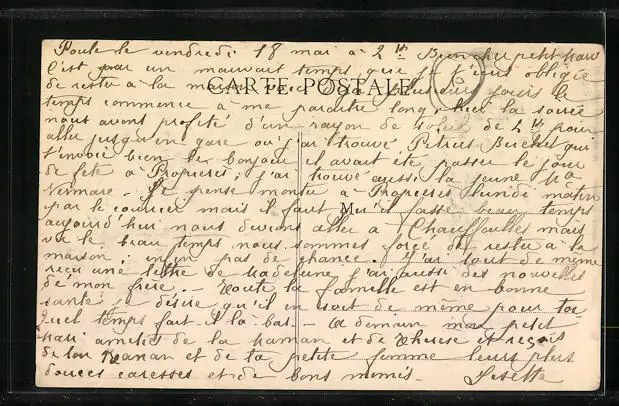 Poule le vendredi 18 mai à 2 h Bien cher petit
C'est par un mauvais temps que je t'écris obligée
CARTE POSTALE
de rester à la maison plusieurs jours le
temps commence à me paraitre long, hier la soirée
nous avons profité d'un rayon de soleil de 2 h pour
aller jusqu'en gare où j'ai trouvé Petrus Buchet qui
t'envoie bien le bonjour il avait été passer le jour
de fête à Propières, j'ai trouvé aussi la jeune
Je pense monter à Propières lundi matin
par le courrier mais il faut qu'il fasse beau temps
aujourd'hui nous devions aller à Chauffailles mais
vu le beau temps nous sommes forcé de rester à la
maison; enfin pas de chance. J'ai tout de même
reçu une lettre de j'ai aussi des nouvelles
de mon frère. - Toute la famille est en bonne
santé je désire qu'il en soit de même pour toi
Quel temps fait-il là-bas. - A demain mon petit
amitiés de la maman et de Thérèse et reçois
de ton et de ta petite femme leurs plus
douces caresses et de bons mimis. Lisette